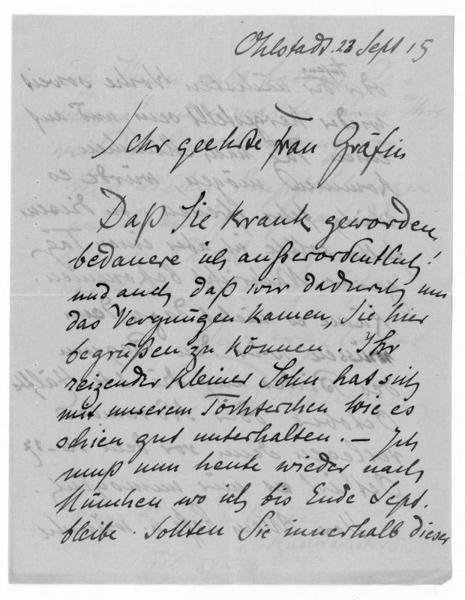 Ohlstadt. 23 Sept 15
Sehr geehrte Frau Gräfin
Daß Sie krank geworden,
bedauere ich außerordentlich!
und auch daß wir dadurch um
das Vergnügen kamen, Sie hier
begrüßen zu können. Ihr
reizender kleiner Sohn hat sich
mit unserem Töchterchen wie es
schien gut unterhalten. – Ich
muß nun heute wieder nach
München wo ich bis Ende Sept.
bleibe. Sollten Sie innerhalb dieser